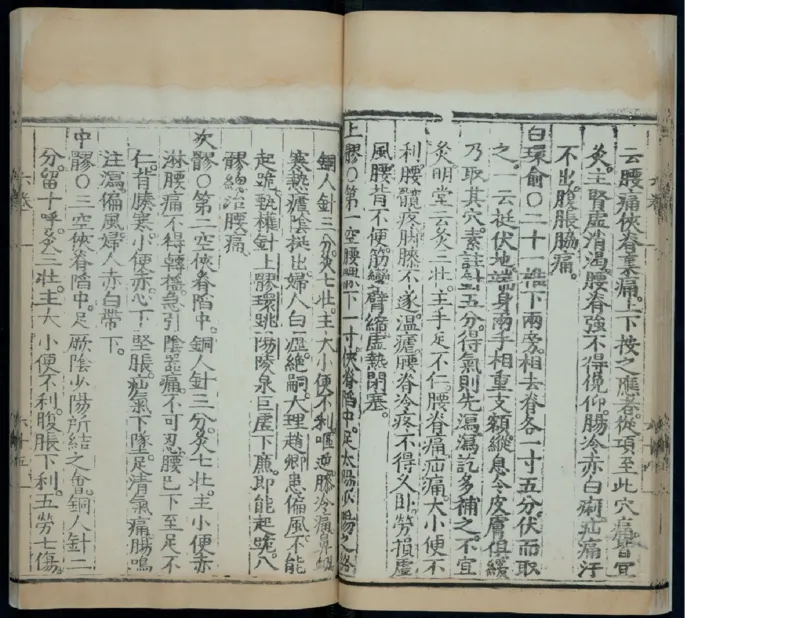 云腰痛俠脊裏痛。上下按之應者從項至此穴痛皆宜
灸。主腎虛消渴。腰脊強不得俛仰。腸冷赤白痢。疝痛汗
不出。腹脹脇痛。
白環俞〇二十一椎下兩旁。相去脊各一寸五分。伏而取
之。一云挺伏地端身兩手相重支額縱息令皮膚俱緩
乃取其穴。素註針五分。得氣則先瀉瀉訖多補之。不宜
灸明堂云灸三壯。主手足不仁腰脊痛疝痛。大小便不
利腰髖疼脚膝不遂。溫瘧腰脊冷疼不得久臥。勞損虛
風腰背不便筋攣臂縮虛熱閉塞。
上髎〇第一空腰髁下一寸俠脊陷中。足太陽少陽之絡
銅人針三分。灸七壯。主大小便不利。嘔逆膝冷痛鼻衄
寒熱瘧陰挺出婦人白瀝絕嗣。大理趙卿患偏風。不能
起跪。甄權針上髎環跳陽陵泉巨虛下廉即能起跪。八
髎總治腰痛
次髎〇第二空俠脊陷中。銅人針三分。灸七壯。主小便赤
淋腰痛不得轉搖急引陰器痛。不可忍腰已下至足不
仁。背腠寒。小便赤。心下堅脹。疝氣下墜。足清氣痛腸鳴
注瀉。偏風婦人赤白帶下。
中髎〇三空俠脊陷中。足厥陰少陽所結之會。銅人針二
分。留十呼。灸三壯。主大小便不利。腹脹下利。五勞七傷。